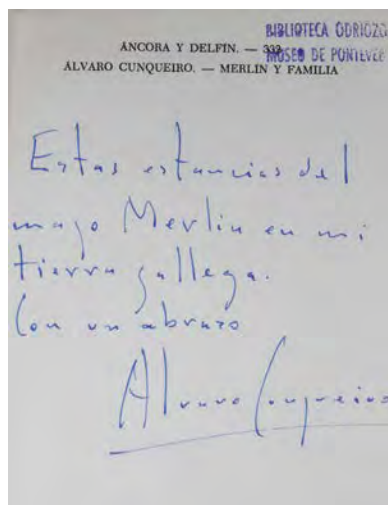 BIBLIOTECA ODRIOZO
MUSEO DE PONTEVE
ÁNCORA Y DELFÍN. — 332
ÁLVARO CUNQUEIRO. — MERLÍN Y FAMILIA
Estas estancias del
mago Merlin en mi
tierra gallega.
Con un abrazo
Alvaro Cunqueiro